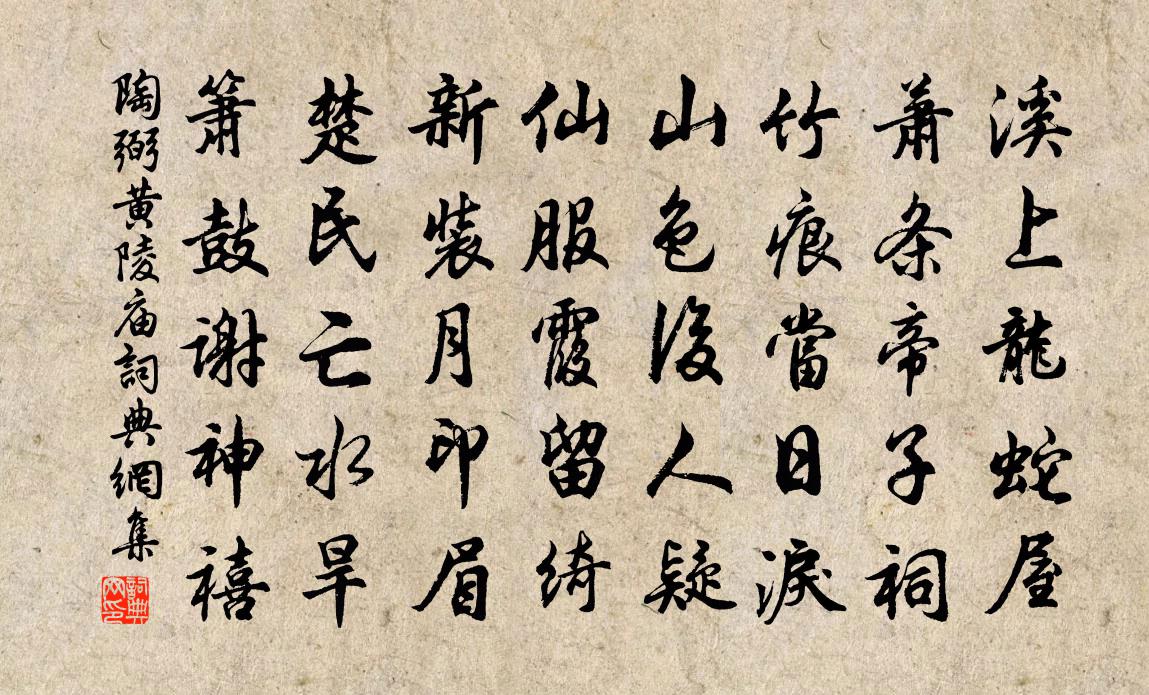 溪上龍蛇屋
蕭条帝子祠
竹痕當日淚
山色後人疑
仙服霞留綺
新裝月印眉
楚民亡水旱
簫鼓謝神禧
陶弼黃陵庙詞典網集
詞典網印